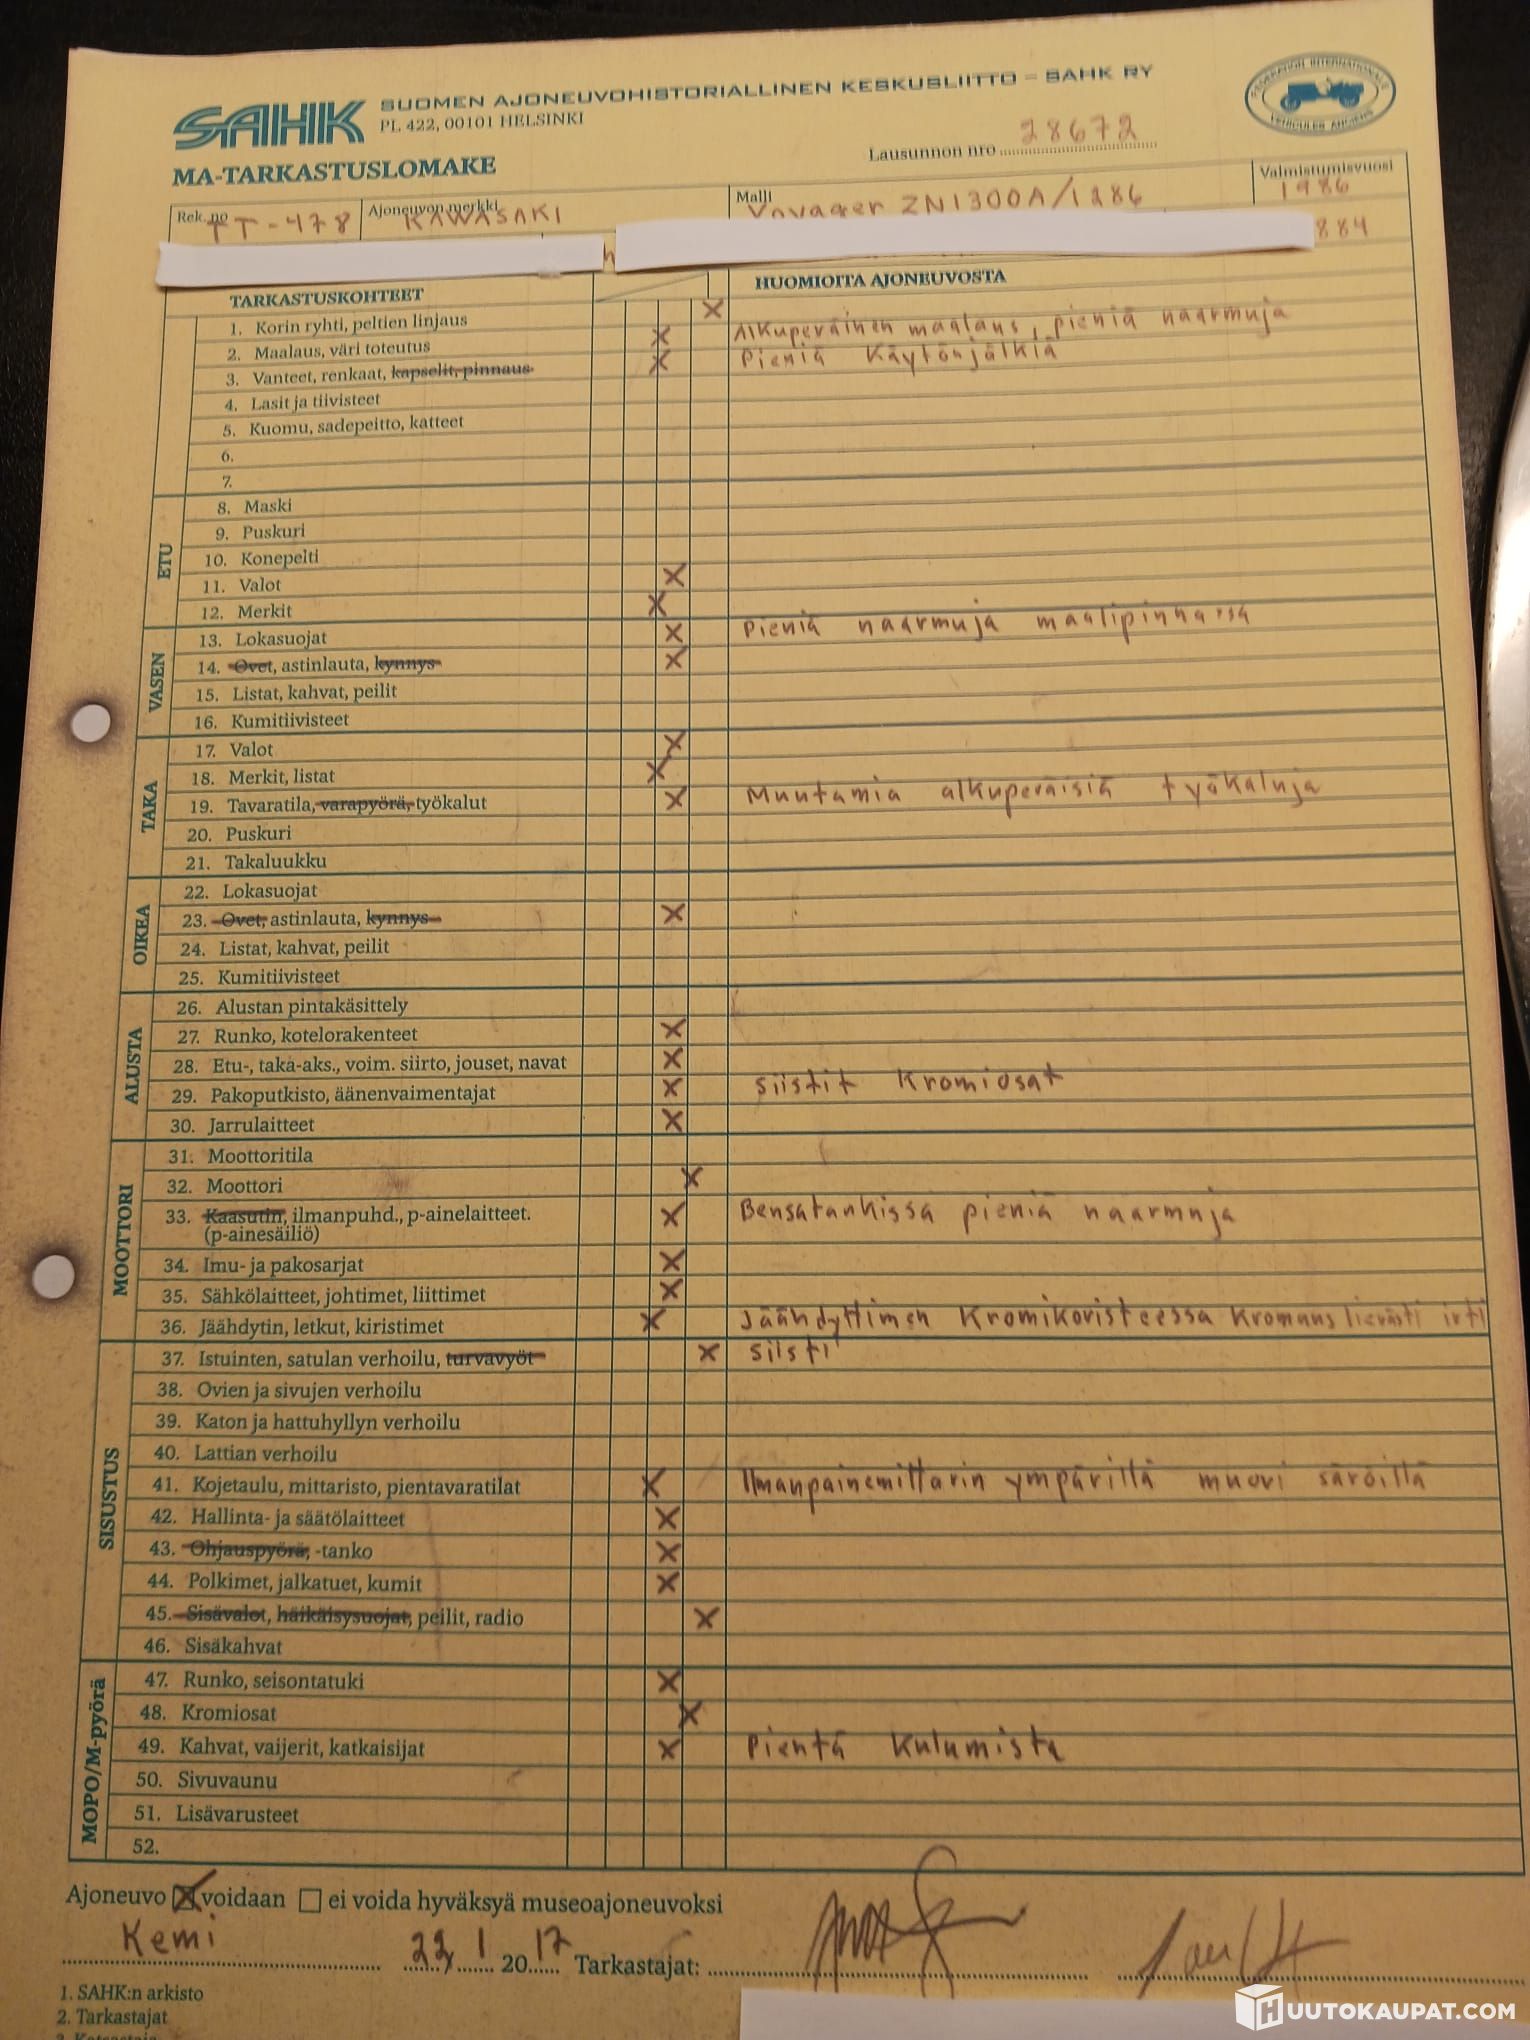 SAHK SUOMEN AJONEUVOHISTORIALLINEN KESKUSLIITTO – SAHK RY
PL 422, 00101 HELSINKI
FEDERATION INTERNATIONALE VEHICULES ANCIENS
MA-TARKASTUSLOMAKE
Lausunnon nro 28672
Rek. no TT-478 Ajoneuvon merkki KAWASAKI Malli Voyager ZN1300A/1286 Valmistumisvuosi 1986
884
TARKASTUSKOHTEET HUOMIOITA AJONEUVOSTA
1. Korin ryhti, peltien linjaus X
2. Maalaus, väri toteutus X Alkuperäinen maalaus, pieniä naarmuja
3. Vanteet, renkaat, kapselit, pinnaus X Pieniä Käytönjälkiä
4. Lasit ja tiivisteet
5. Kuomu, sadepeitto, katteet
6.
7.
ETU
8. Maski
9. Puskuri
10. Konepelti
11. Valot X
12. Merkit X
VASEN
13. Lokasuojat X Pieniä naarmuja maalipinnassa
14. Ovet, astinlauta, kynnys X
15. Listat, kahvat, peilit
16. Kumitiivisteet
TAKA
17. Valot X
18. Merkit, listat X
19. Tavaratila, varapyörä, työkalut X Muutamia alkuperäisiä työkaluja
20. Puskuri
21. Takaluukku
OIKEA
22. Lokasuojat
23. Ovet, astinlauta, kynnys X
24. Listat, kahvat, peilit
25. Kumitiivisteet
ALUSTA
26. Alustan pintakäsittely
27. Runko, kotelorakenteet X
28. Etu-, taka-aks., voim. siirto, jouset, navat X
29. Pakoputkisto, äänenvaimentajat X siistit Kromiosat
30. Jarrulaitteet X
MOOTTORI
31. Moottoritila
32. Moottori X
33. Kaasutin, ilmanpuhd., p-ainelaitteet. X Bensatankissa pieniä naarmuja
(p-ainesäiliö)
34. Imu- ja pakosarjat X
35. Sähkölaitteet, johtimet, liittimet X
36. Jäähdytin, letkut, kiristimet X Jäähdyttimen Kromikoristeessa Kromaus lievästi irti
SISUSTUS
37. Istuinten, satulan verhoilu, turvavyöt X siisti
38. Ovien ja sivujen verhoilu
39. Katon ja hattuhyllyn verhoilu
40. Lattian verhoilu
41. Kojetaulu, mittaristo, pientavaratilat X Ilmanpainemittarin ympärillä muovi säröillä
42. Hallinta- ja säätölaitteet X
43. Ohjauspyörä, -tanko X
44. Polkimet, jalkatuet, kumit X
45. Sisävalot, häikäisysuojat, peilit, radio X
46. Sisäkahvat
MOPO/M-pyörä
47. Runko, seisontatuki X
48. Kromiosat X
49. Kahvat, vaijerit, katkaisijat X Pientä Kulumista
50. Sivuvaunu
51. Lisävarusteet
52.
Ajoneuvo X voidaan ei voida hyväksyä museoajoneuvoksi
Kemi 22/1 2017 Tarkastajat:
1. SAHK:n arkisto
2. Tarkastajat
HUUTOKAUPAT.COM